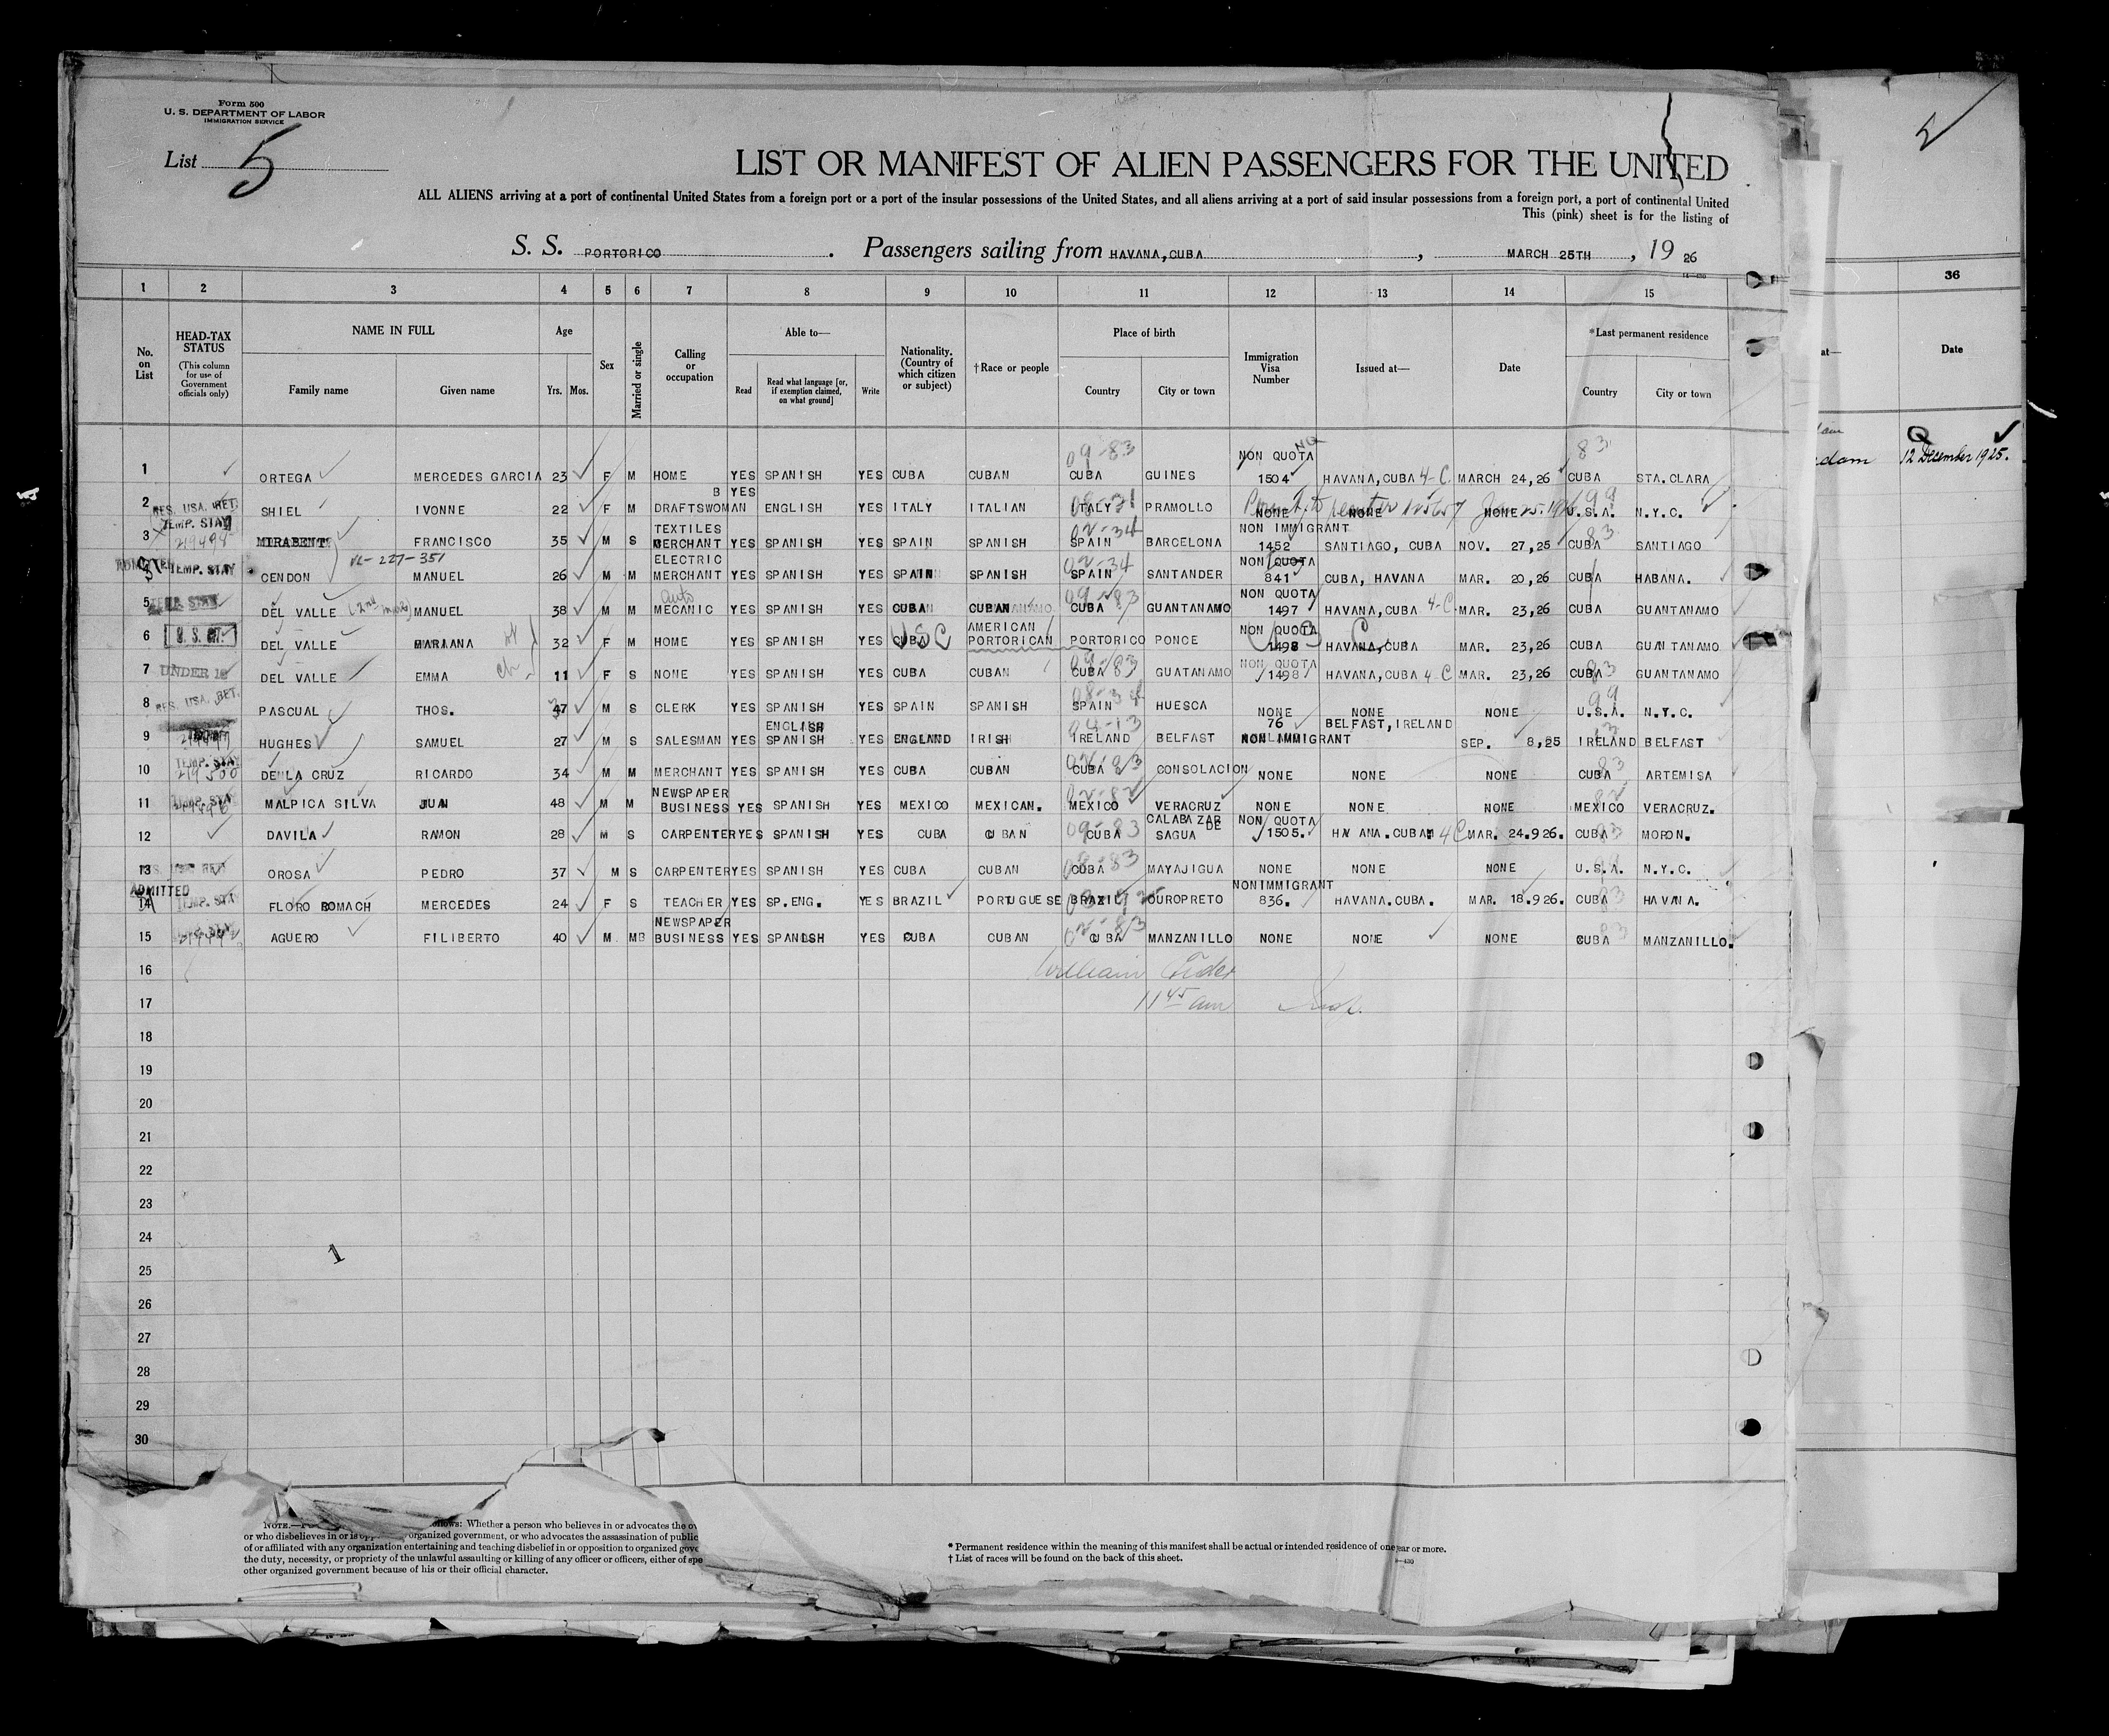 Form 500
U. S. DEPARTMENT OF LABOR
IMMIGRATION SERVICE
List 5
LIST OR MANIFEST OF ALIEN PASSENGERS FOR THE UNITED
ALL ALIENS arriving at a port of continental United States from a foreign port or a port of the insular possessions of the United States, and all aliens arriving at a port of said insular possessions from a foreign port, a port of continental United
This (pink) sheet is for the listing of
S. S. PORTORICO . Passengers sailing from HAVANA, CUBA , MARCH 25TH , 19 26
1 2 3 4 5 6 7 8 9 10 11 12 13 14 15 36
No. on List
HEAD-TAX STATUS (This column for use of Government officials only)
NAME IN FULL
Family name Given name
Age
Yrs. Mos.
Sex
Married or single
Calling or occupation
Able to—
Read Read what language [or, if exemption claimed, on what ground] Write
Nationality. (Country of which citizen or subject)
†Race or people
Place of birth
Country City or town
Immigration Visa Number
Issued at—
Date
*Last permanent residence
Country City or town
at— Date
12 December 1925.
1 ORTEGA MERCEDES GARCIA 23 F M HOME YES SPANISH YES CUBA CUBAN 09-83 CUBA GUINES NON QUOTA 1504 HAVANA, CUBA 4-C MARCH 24,26 83 CUBA STA. CLARA
2 RES. USA. RET. SHIEL IVONNE 22 F M DRAFTSWOMAN YES ENGLISH YES ITALY ITALIAN ITALY PRAMOLLO NONE NONE NONE 99 U.S.A. N.Y.C.
3 TEMP. STAY 219498 MIRABENT FRANCISCO 35 M S TEXTILES MERCHANT YES SPANISH YES SPAIN SPANISH 02-34 SPAIN BARCELONA NON IMMIGRANT 1452 SANTIAGO, CUBA NOV. 27,25 83 CUBA SANTIAGO
TEMP. STAY CENDON VL-227-351 MANUEL 26 M M ELECTRIC MERCHANT YES SPANISH YES SPAIN SPANISH 02-34 SPAIN SANTANDER NON QUOTA 841 CUBA, HAVANA MAR. 20,26 CUBA HABANA.
5 DEL VALLE MANUEL 38 M M auto MECANIC YES SPANISH YES CUBA CUBAN CUBA GUANTANAMO NON QUOTA 1497 HAVANA, CUBA 4-C MAR. 23,26 CUBA GUANTANAMO
6 DEL VALLE MARIANA 32 F M HOME YES SPANISH YES CUBA USC AMERICAN PORTORICAN PORTORICO PONCE NON QUOTA 1498 USC HAVANA, CUBA MAR. 23,26 CUBA GUANTANAMO
7 UNDER 16 DEL VALLE EMMA ch 11 F S NONE YES SPANISH YES CUBA CUBAN 09-83 CUBA GUATANAMO NON QUOTA 1498 HAVANA, CUBA 4-C MAR. 23,26 83 CUBA GUANTANAMO
8 RES. USA. RET. PASCUAL THOS. 47 M S CLERK YES SPANISH YES SPAIN SPANISH 08-34 SPAIN HUESCA NONE NONE NONE 99 U.S.A. N.Y.C.
9 HUGHES SAMUEL 27 M S SALESMAN YES ENGLISH SPANISH YES ENGLAND IRISH IRELAND BELFAST 76 NON IMMIGRANT BELFAST, IRELAND SEP. 8,25 IRELAND BELFAST
10 TEMP. STAY 219500 DE LA CRUZ RICARDO 34 M M MERCHANT YES SPANISH YES CUBA CUBAN CUBA CONSOLACION NONE NONE NONE 83 CUBA ARTEMISA
11 MALPICA SILVA JUAN 48 M M NEWSPAPER BUSINESS YES SPANISH YES MEXICO MEXICAN. 02-82 MEXICO VERACRUZ NONE NONE. NONE 82 MEXICO VERACRUZ.
12 DAVILA RAMON 28 M S CARPENTER YES SPANISH YES CUBA CUBAN 09-83 CUBA CALABAZAR DE SAGUA NON QUOTA 1505. HAVANA. CUBA 4C MAR. 24.926. 83 CUBA MORON.
13 OROSA PEDRO 37 M S CARPENTER YES SPANISH YES CUBA CUBAN CUBA MAYAJIGUA NONE NONE NONE U.S.A. N.Y.C.
ADMITTED
14 TEMP. STAY FLORO BOMACH MERCEDES 24 F S TEACHER YES SP. ENG. YES BRAZIL PORTUGUESE BRAZIL OUROPRETO NONIMMIGRANT 836. HAVANA. CUBA. MAR. 18.926. 83 CUBA HAVANA.
15 AGUERO FILIBERTO 40 M. M NEWSPAPER BUSINESS YES SPANISH YES CUBA CUBAN 02-83 CUBA MANZANILLO NONE NONE NONE 83 CUBA MANZANILLO.
16 William
17 11 45 am
18
19
20
21
22
23
24
25
26
27
28
29
30
1
Whether a person who believes in or advocates the
or who disbelieves in or is organized government, or who advocates the assassination of public
of or affiliated with any organization entertaining and teaching disbelief in or opposition to organized
the duty, necessity, or propriety of the unlawful assaulting or killing of any officer or officers, either of
other organized government because of his or their official character.
* Permanent residence within the meaning of this manifest shall be actual or intended residence of one year or more.
† List of races will be found on the back of this sheet.